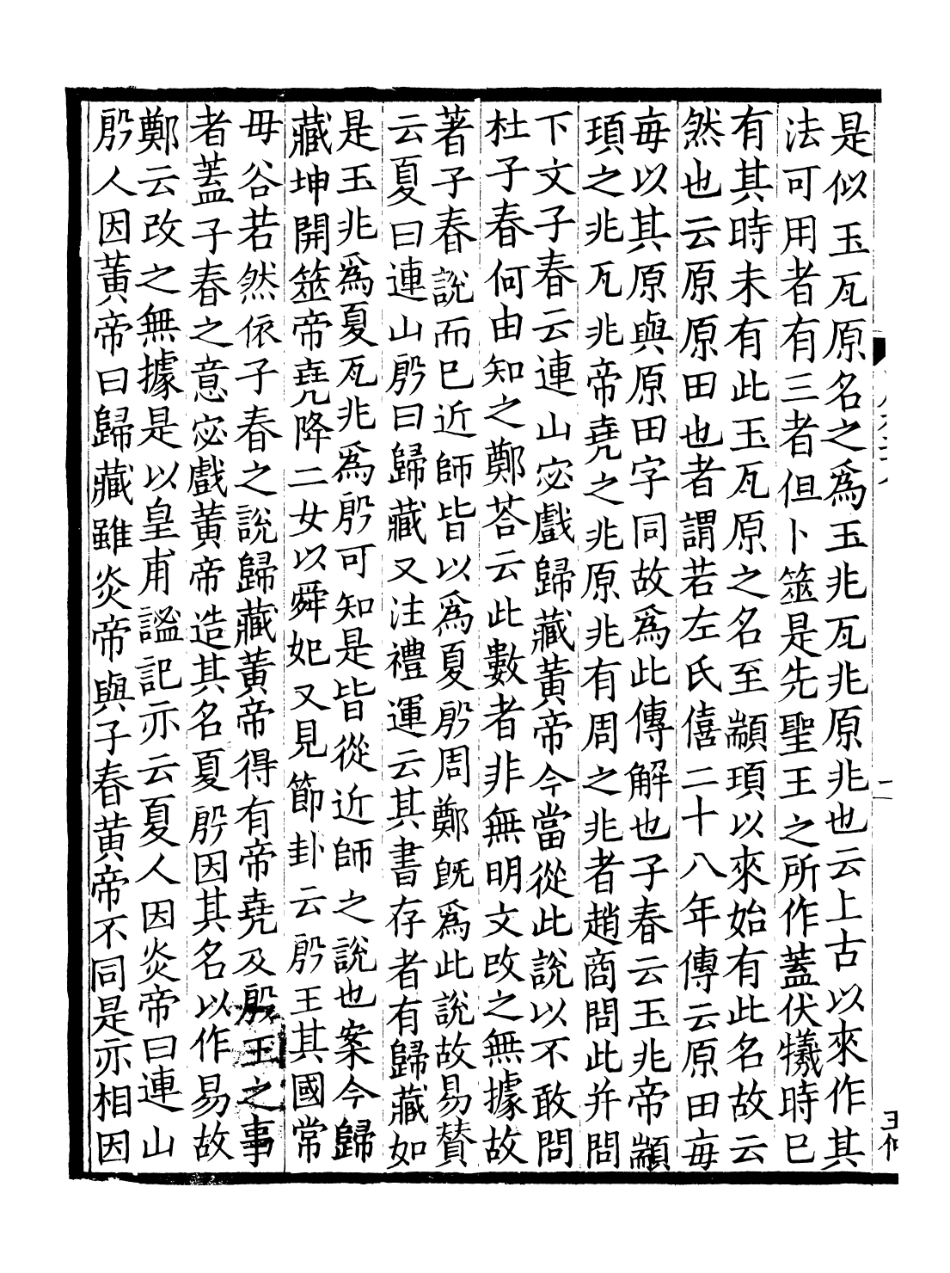 是似玉瓦原名之爲玉兆瓦兆原兆也云上古以來作其
法可用者有三者但卜筮是先聖王之所作蓋伏犧時巳
有其時未有此玉瓦原之名至顓頊以來始有此名故云
然也云原原田也者謂若左氏僖二十八年傳云原田每
每以其原與原田字同故爲此傳解也子春云玉兆帝顓
頊之兆瓦兆帝堯之兆原兆有周之兆者趙商問此并問
下文子春云連山宓戲歸藏黃帝今當從此說以不敢問
杜子春何由知之鄭荅云此數者非無明文改之無據故
著子春說而巳近師皆以爲夏殷周鄭旣爲此說故易贊
云夏曰連山殷曰歸藏又注禮運云其書存者有歸藏如
是玉兆爲夏瓦兆爲殷可知是皆從近師之說也案今歸
藏坤開筮帝堯降二女以舜妃又見節卦云殷王其國常
毋谷若然依子春之說歸藏黃帝得有帝堯及殷王之事
者蓋子春之意宓戲黃帝造其名夏殷因其名以作易故
鄭云改之無據是以皇甫謐記亦云夏人因炎帝曰連山
殷人因黃帝曰歸藏雖炎帝與子春黃帝不同是亦相因